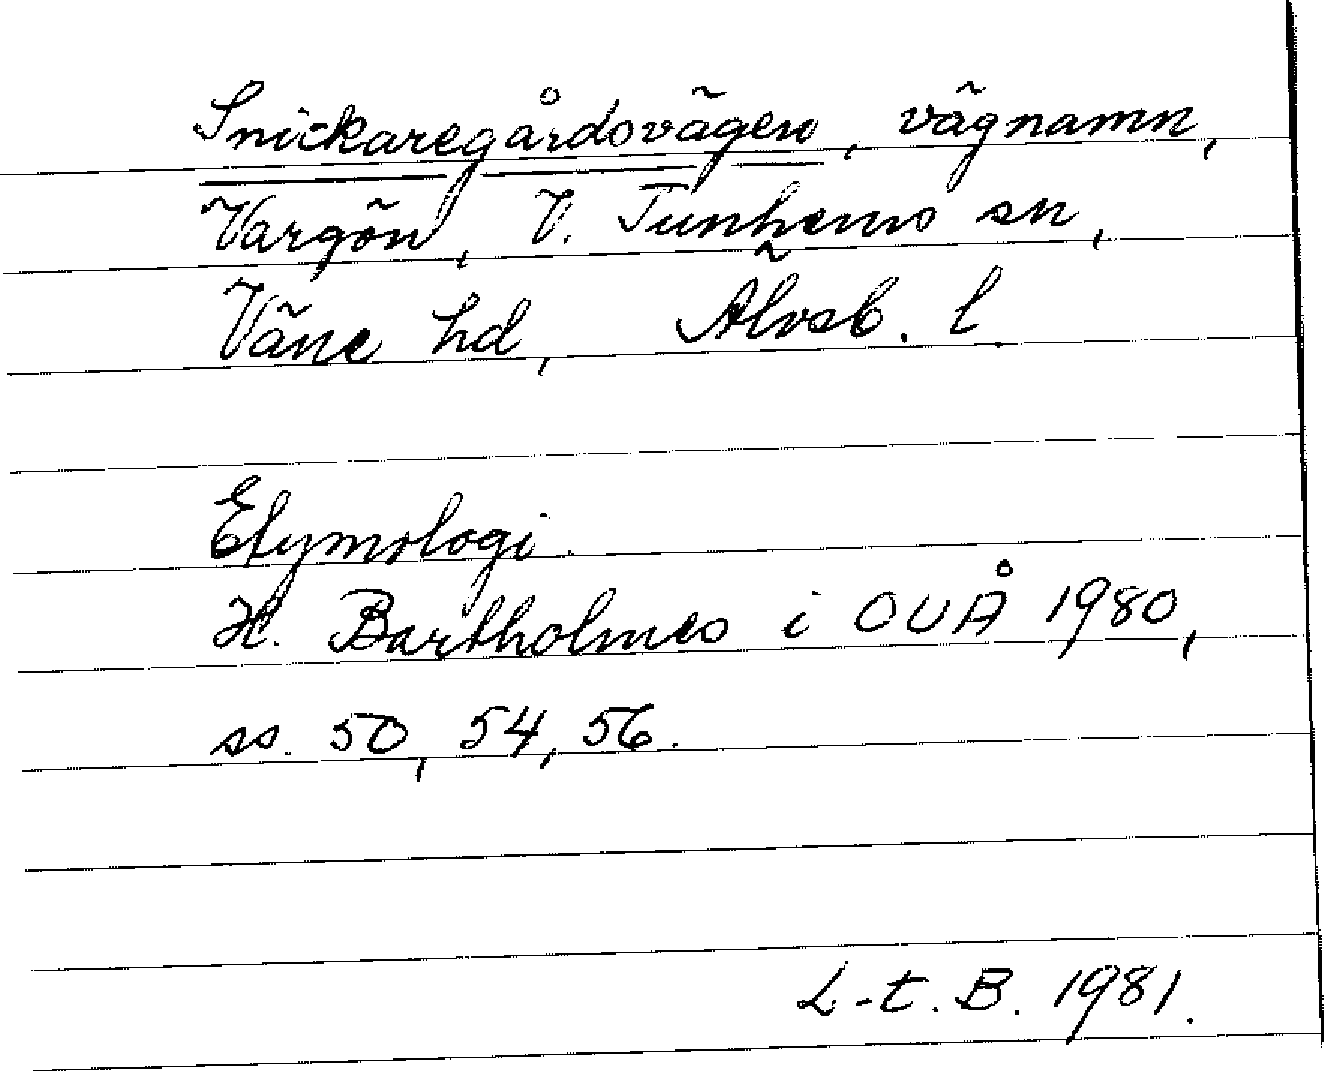 Snickaregårdsvägen, vägnamn,
Vargön, V. Tunhems sn,
Väne hd, Älvsb. l.
Etymologi.
H. Bartholmes i OUÅ 1980,
ss. 50, 54, 56.
L-t. B. 1981.